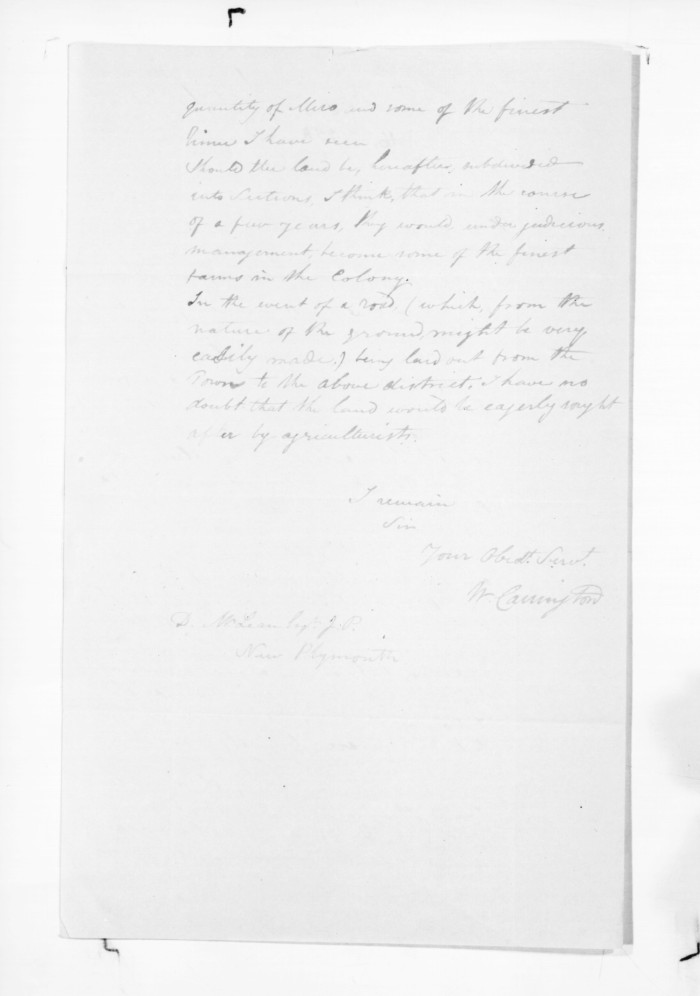 quantity of Miro and some of the finest
Rimu I have seen
Should the land be, hereafter, subdivided
into Sections, I think, that in the course
of a few years, they would, under judicious
management, become some of the finest
farms in the Colony.
In the event of a road, (which, from the
nature of the ground, might be very
easily made,) being laid out from the
Town to the above district, I have no
doubt that the land would be eagerly sought
after by agriculturists.
I remain
Sir
Your Obedt. Servt.
W Carrington
D. McLean Esqr. J.P.
New Plymouth